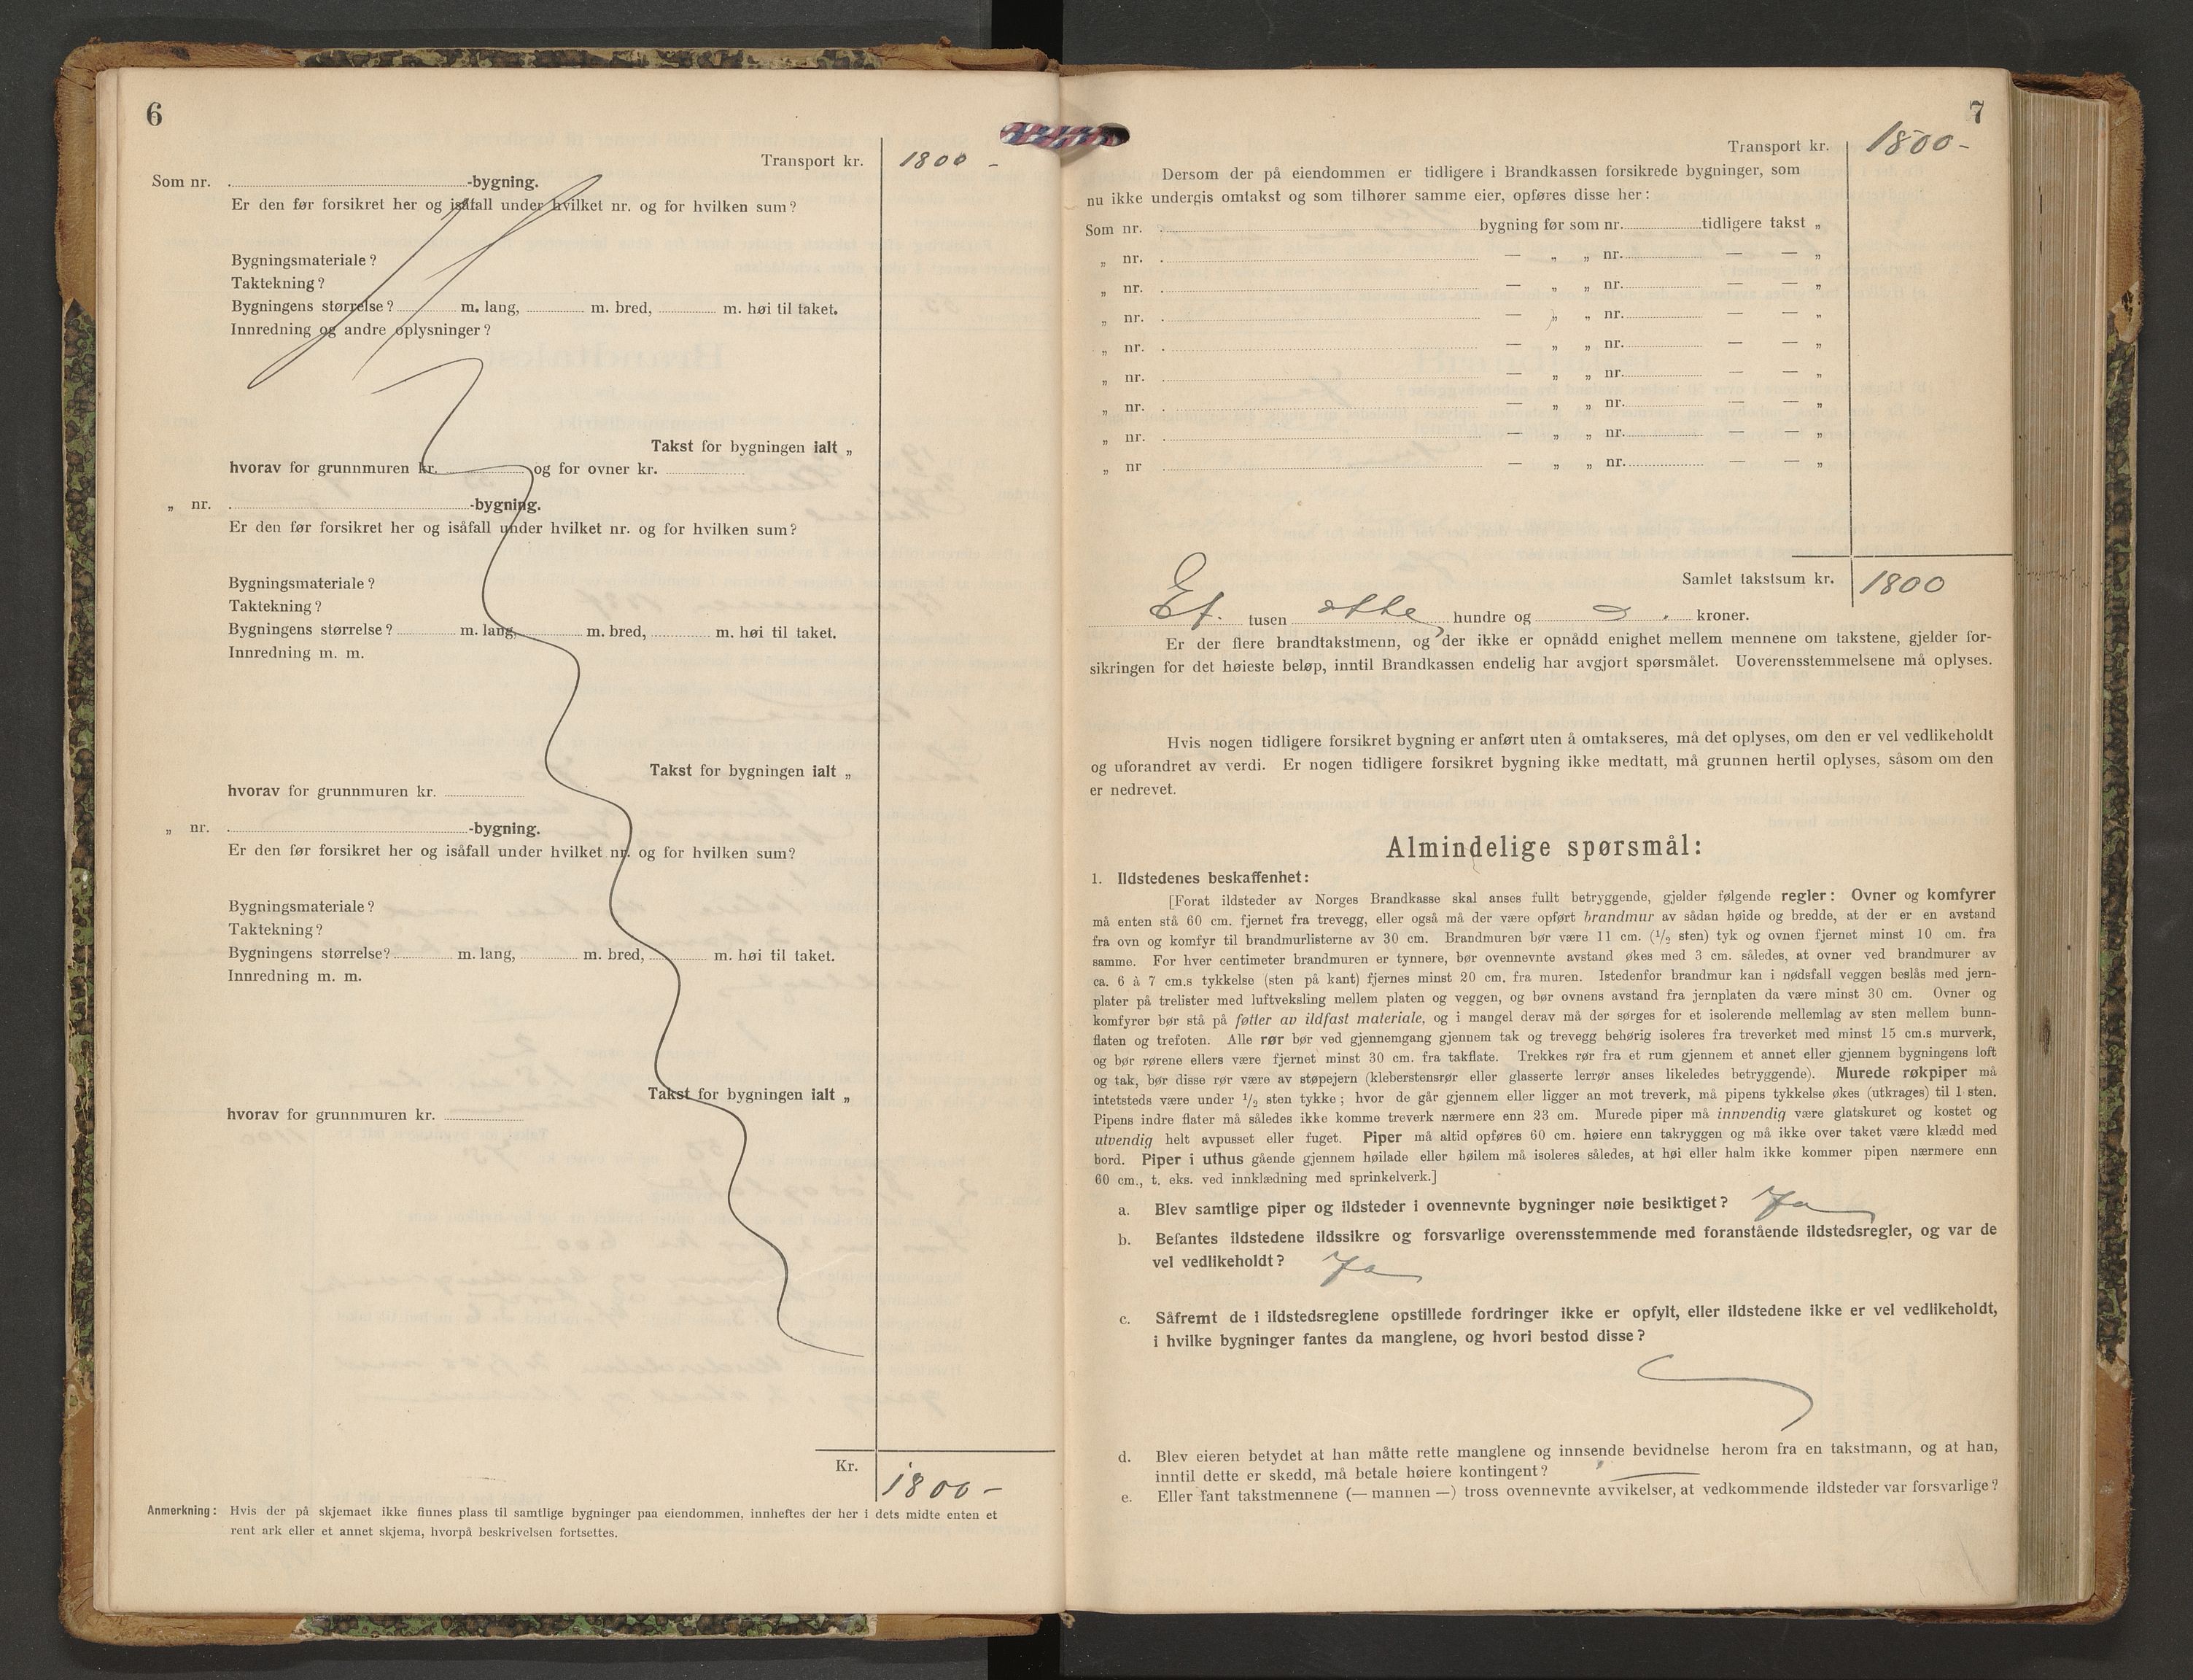 6
Transport kr. 1800 -
Som nr. -bygning.
Er den før forsikret her og isåfall under hvilket nr. og for hvilken sum?
Bygningsmateriale?
Taktekning?
Bygningens størrelse? m. lang, m. bred, m. høi til taket.
Innredning og andre oplysninger?
Takst for bygningen ialt „
hvorav for grunnmuren kr. og for ovner kr.
„ nr. -bygning.
Er den før forsikret her og isåfall under hvilket nr. og for hvilken sum?
Bygningsmateriale?
Taktekning?
Bygningens størrelse? m. lang, m. bred, m. høi til taket.
Innredning m. m.
Takst for bygningen ialt „
hvorav for grunnmuren kr.
„ nr. -bygning.
Er den før forsikret her og isåfall under hvilket nr. og for hvilken sum?
Bygningsmateriale?
Taktekning?
Bygningens størrelse? m. lang, m. bred, m. høi til taket.
Innredning m. m.
Takst for bygningen ialt „
hvorav for grunnmuren kr.
Kr. 1800 -
Anmerkning: Hvis der på skjemaet ikke finnes plass til samtlige bygninger paa eiendommen, innheftes der her i dets midte enten et
rent ark eller et annet skjema, hvorpå beskrivelsen fortsettes.
7
Transport kr. 1800 -
Dersom der på eiendommen er tidligere i Brandkassen forsikrede bygninger, som
nu ikke undergis omtakst og som tilhører samme eier, opføres disse her:
Som nr. bygning før som nr. tidligere takst „
„ nr. — „ „ nr. — — „
„ nr. — „ „ nr. — — „
„ nr. — „ „ nr. — — „
„ nr. — „ „ nr. — — „
„ nr. — „ „ nr. — — „
„ nr. — „ „ nr. — — „
„ nr. — „ „ nr. — — „
„ nr — „ „ nr. — — „
Samlet takstsum kr. 1800
Et. tusen otte hundre og kroner.
Er der flere brandtakstmenn, og der ikke er opnådd enighet mellem mennene om takstene, gjelder for-
sikringen for det høieste beløp, inntil Brandkassen endelig har avgjort spørsmålet. Uoverensstemmelsene må oplyses.
Hvis nogen tidligere forsikret bygning er anført uten å omtakseres, må det oplyses, om den er vel vedlikeholdt
og uforandret av verdi. Er nogen tidligere forsikret bygning ikke medtatt, må grunnen hertil oplyses, såsom om den
er nedrevet.
Almindelige spørsmål:
1. Ildstedenes beskaffenhet:
[Forat ildsteder av Norges Brandkasse skal anses fullt betryggende, gjelder følgende regler: Ovner og komfyrer
må enten stå 60 cm. fjernet fra trevegg, eller også må der være opført brandmur av sådan høide og bredde, at der er en avstand
fra ovn og komfyr til brandmurlisterne av 30 cm. Brandmuren bør være 11 cm. (1/2 sten) tyk og ovnen fjernet minst 10 cm. fra
samme. For hver centimeter brandmuren er tynnere, bør ovennevnte avstand økes med 3 cm. således, at ovner ved brandmurer av
ca. 6 à 7 cm.s tykkelse (sten på kant) fjernes minst 20 cm. fra muren. Istedenfor brandmur kan i nødsfall veggen beslås med jern-
plater på trelister med luftveksling mellem platen og veggen, og bør ovnens avstand fra jernplaten da være minst 30 cm. Ovner og
komfyrer bør stå på føtter av ildfast materiale, og i mangel derav må der sørges for et isolerende mellemlag av sten mellem bunn-
flaten og trefoten. Alle rør bør ved gjennemgang gjennem tak og trevegg behørig isoleres fra treverket med minst 15 cm.s murverk,
og bør rørene ellers være fjernet minst 30 cm. fra takflate. Trekkes rør fra et rum gjennem et annet eller gjennem bygningens loft
og tak, bør disse rør være av støpejern (kleberstensrør eller glasserte lerrør anses likeledes betryggende). Murede røkpiper må
intetsteds være under 1/2 sten tykke; hvor de går gjennem eller ligger an mot treverk, må pipens tykkelse økes (utkrages) til 1 sten.
Pipens indre flater må således ikke komme treverk nærmere enn 23 cm. Murede piper må innvendig være glatskuret og kostet og
utvendig helt avpusset eller fuget. Piper må altid opføres 60 cm. høiere enn takryggen og må ikke over taket være klædd med
bord. Piper i uthus gående gjennem høilade eller høilem må isoleres således, at høi eller halm ikke kommer pipen nærmere enn
60 cm., t. eks. ved innklædning med sprinkelverk.]
a. Blev samtlige piper og ildsteder i ovennevnte bygninger nøie besiktiget? Ja
b. Befantes ildstedene ildssikre og forsvarlige overensstemmende med foranstående ildstedsregler, og var de
vel vedlikeholdt? Ja
c. Såfremt de i ildstedsreglene opstillede fordringer ikke er opfylt, eller ildstedene ikke er vel vedlikeholdt,
i hvilke bygninger fantes da manglene, og hvori bestod disse?
d. Blev eieren betydet at han måtte rette manglene og innsende bevidnelse herom fra en takstmann, og at han,
inntil dette er skedd, må betale høiere kontingent?
e. Eller fant takstmennene (— mannen —) tross ovennevnte avvikelser, at vedkommende ildsteder var forsvarlige?